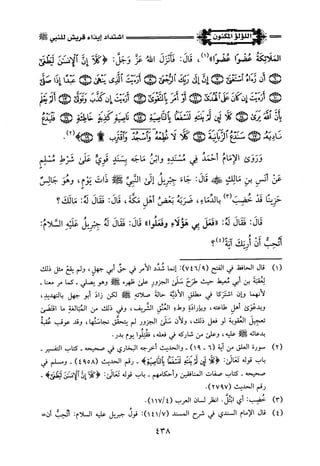 اشتداد إيذاء قريش للنبي ﷺ
اللؤلؤ المكنون
الملائكة عضوا عضوا»(١)، قال: فأنزل الله عز وجل: ﴿كلا إن الإنسن ليطغى
أن رءاه استغنى إن إلى ربك الرجعى أرءيت الذى ينهى عبدا إذا صلى
أرءيت إن كان على الهدى أو أمر بالتقوى أرءيت إن كذب وتولى ألم يعلم
بأن الله يرى كلا لئن لم ينته لنسفعا بالناصية ناصية كذبة خاطئة فليدع
ناديه سندع الزبانية كلا لا تطعه واسجد واقترب﴾(٢).
وروى الإمام أحمد في مسنده وابن ماجه بسند قوي على شرط مسلم
عن أنس بن مالك ﷺ قال: جاء جبريل إلى النبي ﷺ ذات يوم، وهو جالس
حزينا قد خضب(٣) بالدماء، ضربه بعض أهل مكة، قال: فقال له: مالك؟
قال: فقال له: «فعل بي هؤلاء وفعلوا» قال: فقال له جبريل عليه السلام:
أتحب أن أريك آية(٤)؟
(١) قال الحافظ في الفتح (٧٤٦/٩): إنما شدد الأمر في حق أبي جهل، ولم يقع مثل ذلك
لعقبة بن أبي معيط حيث طرح سلى الجزور على ظهره ﷺ وهو يصلي ـ كما مر معنا ـ
لأنهما وإن اشتركا في مطلق الأذية حالة صلاته ﷺ لكن زاد أبو جهل بالتهديد،
وبدعوى أهل طاعته، وبإرادة وطء العنق الشريف، وفي ذلك من المبالغة ما اقتضى
تعجيل العقوبة لو فعل ذلك، ولأن سلى الجزور لم يتحقق نجاستها، وقد عوقب عقبة
بدعائه ﷺ عليه، وعلى من شاركه في فعله، فقتلوا يوم بدر.
(٢) سورة العلق من آية (٦ ـ ١٩) ـ والحديث أخرجه البخاري في صحيحه ـ كتاب التفسير ـ
باب قوله تعالى: ﴿كلا لئن لم ينته لنسفعا بالناصية﴾ ـ رقم الحديث (٤٩٥٨) ـ ومسلم في
صحيحه ـ كتاب صفات المنافقين وأحكامهم ـ باب قوله تعالى: ﴿كلا إن الإنسن ليطغى﴾ ـ
رقم الحديث (٢٧٩٧).
(٣) خضب: أي ابتل. انظر لسان العرب (١١٧/٤).
(٤) قال الإمام السندي في شرح المسند (١٤١/٧): قول جبريل عليه السلام: أتحب أن=
٤٣٨